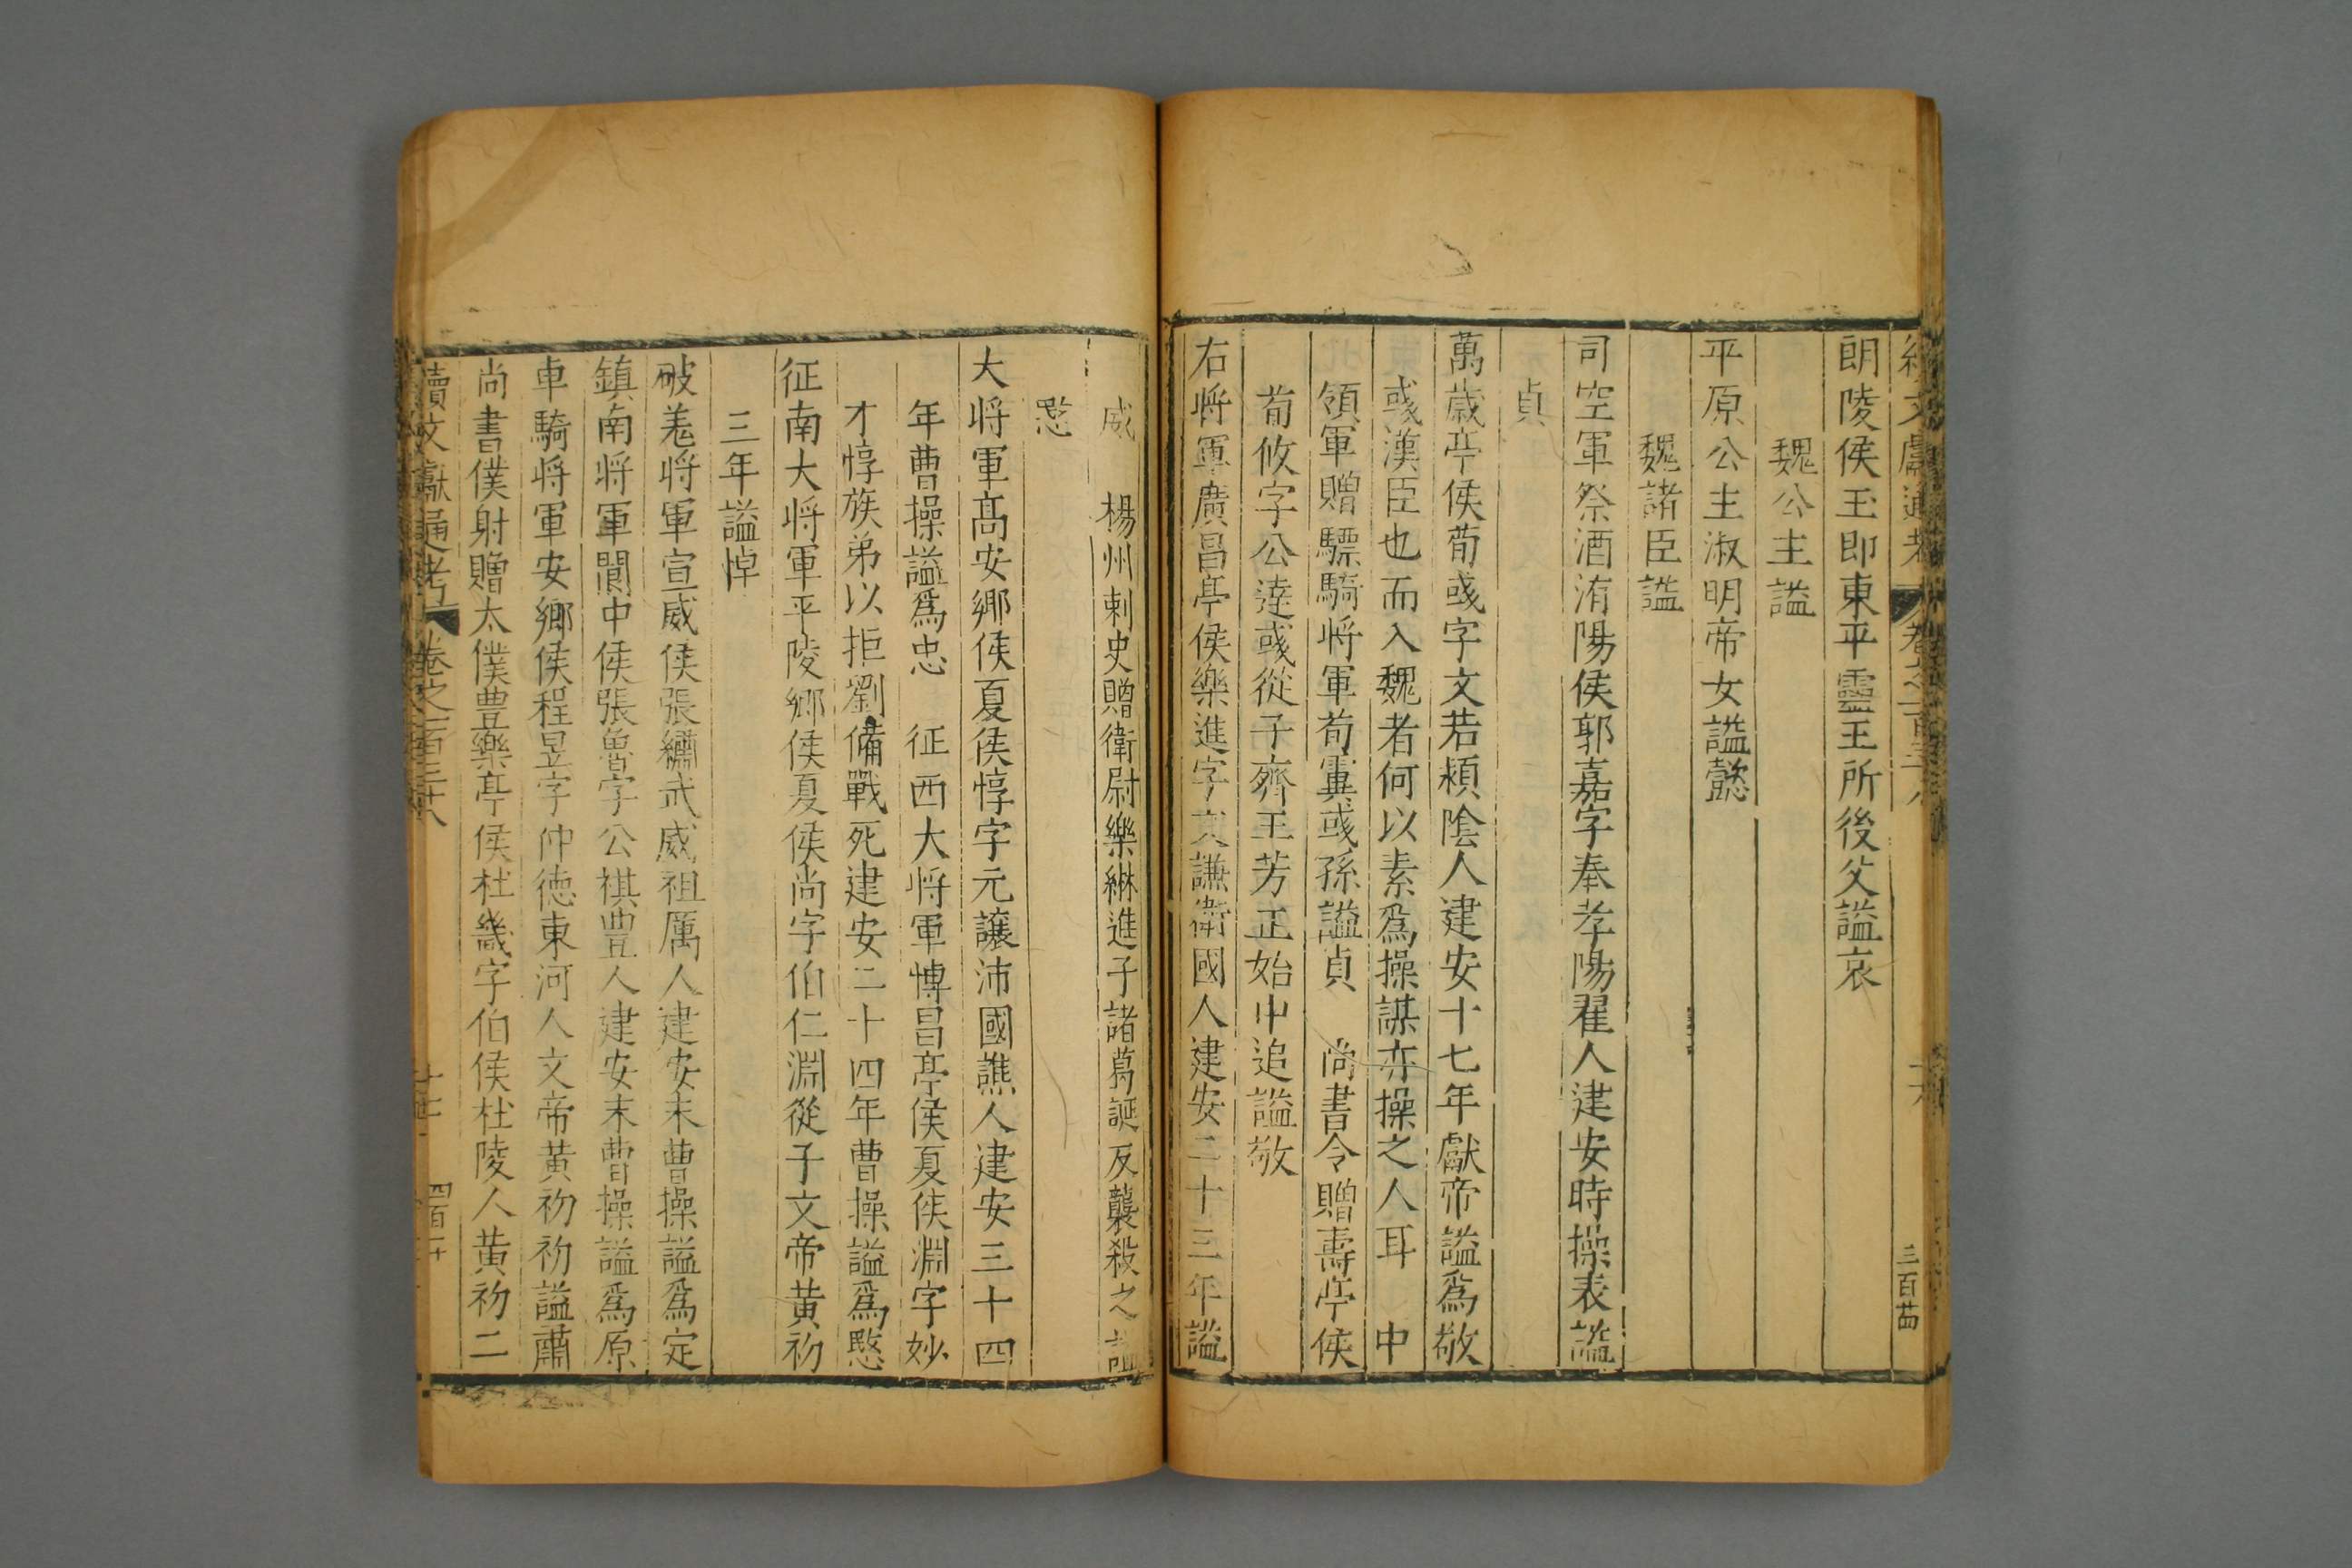 續文獻通考 卷之一百三十八
三百苗
朗陵侯玉即東平靈王所後父謚哀
魏公主謚
平原公主淑明帝女謚懿
魏諸臣謚
司空軍祭酒洧陽侯郭嘉字奉孝陽翟人建安時操表謚
貞
萬歲亭侯荀彧字文若潁陰人建安十七年獻帝謚爲敬
彧漢臣也而入魏者何以素爲操謀亦操之人耳 中
領軍贈驃騎将軍荀霬彧孫謚貞 尚書令贈壽亭侯
荀攸字公達彧從子齊王芳正始中追謚敬
右將軍廣昌亭侯樂進字文謙衛國人建安二十三年謚
威 楊州刺史贈衛尉樂綝進子諸葛誕反襲殺之謚
愍
大将軍高安鄉侯夏侯惇字元讓沛國譙人建安三十四
年曹操謚爲忠 征西大将軍博昌亭侯夏侯淵字妙
才惇族弟以拒劉備戰死建安二十四年曹操謚爲愍
征南大将軍平陵鄉侯夏侯尚字伯仁淵從子文帝黄初
三年謚悼
破羗将軍宣威侯張繡武威祖厲人建安末曹操謚爲定
鎮南将軍閬中侯張魯字公祺豊人建安末曹操謚爲原
車騎将軍安鄉侯程昱字仲德東河人文帝黄初初謚肅
尚書僕射贈太僕豊樂亭侯杜畿字伯侯杜陵人黄初二
續文獻通考 卷之一百三十八
十七
四百二十